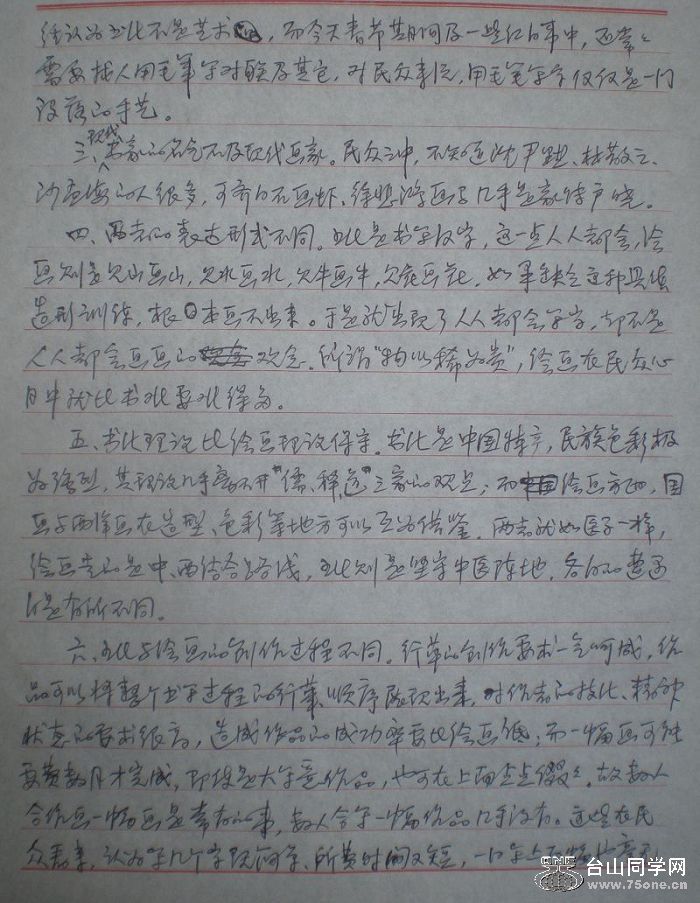 往认为书比不是艺术，而今天春节其间及一些红白事中，还常々
需要找人用毛笔写对联及其它，对民众来说，用毛笔写字仅仅是一门
没落的手艺。
三、现代书家的名气不及现代画家。民众之中，不知道沈尹默、林散之、
的人很多，可齐白石画虾、徐悲鸿画马几乎是家传户晓。
四、两者的表达形式不同。书法是书写汉字，这一点人人都会，绘
画则是见山画山，见水画水，见牛画牛，见花画花，如果缺乏这种具体
造形训练，根本画不出来。于是就出现了人人都会写字，却不是
人人都会画画的观念。所谓“物以稀为贵”，绘画在民众心
目中就比书法要 得多。
五、书法理论比绘画理论保守。书法是中国特产，民族色彩极
为强烈，其理论几乎离不开“儒、释、道”三家的观点；而绘画方面，国
画与西洋画在造型、色彩等地方可以互为借鉴。两者就如医学一样，
绘画走的是中、西结合路线，书法则是坚守中医阵地，各自的
是有所不同。
六、书法与绘画的创作过程不同。行草的创作要求一气呵成，作
品可以将整个书写过程的行笔、顺序展现出来，对作者的技法、精神
状态的要求很高，造成作品的成功率要比绘画低；而一幅画可能
要费数月才完成，即使是大写意作品，也可在上面点点缀缀。故数人
合作画一幅画是常有的事，数人合写一幅作品几乎没有。这些在民
众看来，认为写几个字 ，所费时间又短，
台山同学网
www.75one.cn